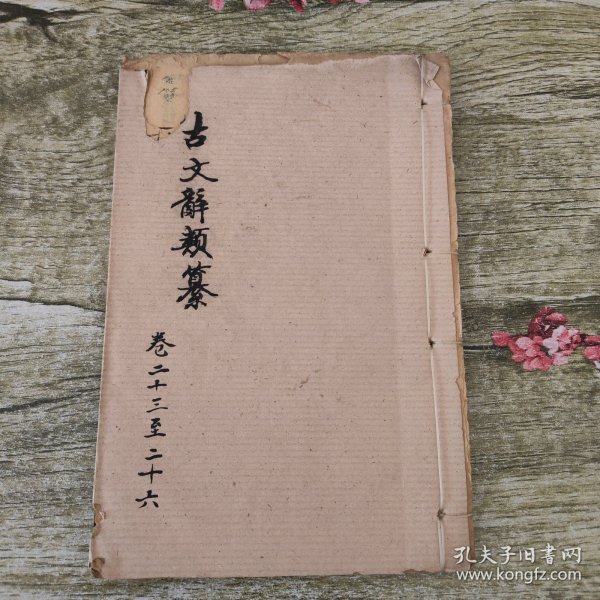 古文辭類纂
卷二十三至二十六
孔夫子旧书网
www.kongfz.com